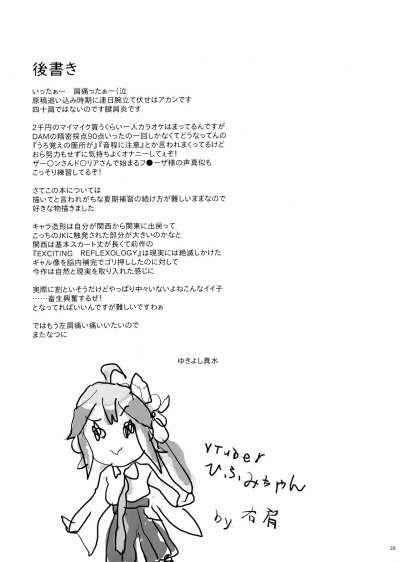 後書き
いったぁー　肩痛ったぁー(泣
原稿追い込み時期に連日腕立て伏せはアカンです
四十肩ではないのです腱肩炎です
2千円のマイマイク買うくらい一人カラオケはまってるんですが
DAMの精密採点90点いったの一回しかなくてどうなってんの
『うろ覚えの箇所が』『音程に注意』とか言われまくってるけど
おら努力もせずに気持ちよくオナニーしてぇぞ!
ザー〇ンさんド〇リアさんで始まるフ●ーザ様の声真似も
こっそり練習してるぞ!
さてこの本については
描いてと言われがちな夏期補習の続け方が難しいままなので
好きな物描きました
キャラ造形は自分が関西から関東に出戻って
こっちのJKに触発された部分が大きいのかなと
関西は基本スカート丈が長くて前作の
『EXCITING　REFLEXOLOGY』は現実には絶滅しかけた
ギャル像を脳内補完でゴリ押ししたのに対して
今作は自然と現実を取り入れた感じに
実際に割といそうだけどやっぱり中々いないよねこんなイイ子
……畜生興奮するぜ!
となってればいいんですが難しいですわぁ
ではもう左肩痛い痛いいたいので
またなつに
ゆきよし真水
VTuber
ひふみちゃん
by 右肩